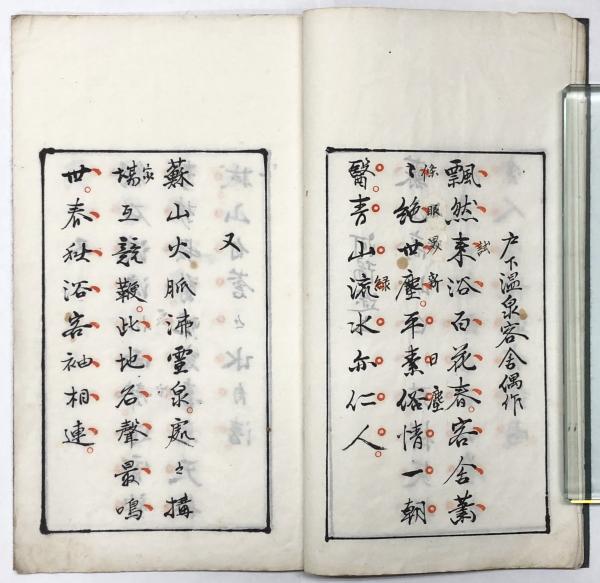 戸下温泉客舎偶作
飄然来浴百花春客舎蕭
試
々絶世塵平素俗情一朝
醫青山流水亦仁人
緑
又
蘇山火脈沸靈泉處々構
場互競鞭此地名聲最鳴
家
世春秋浴客袖相連